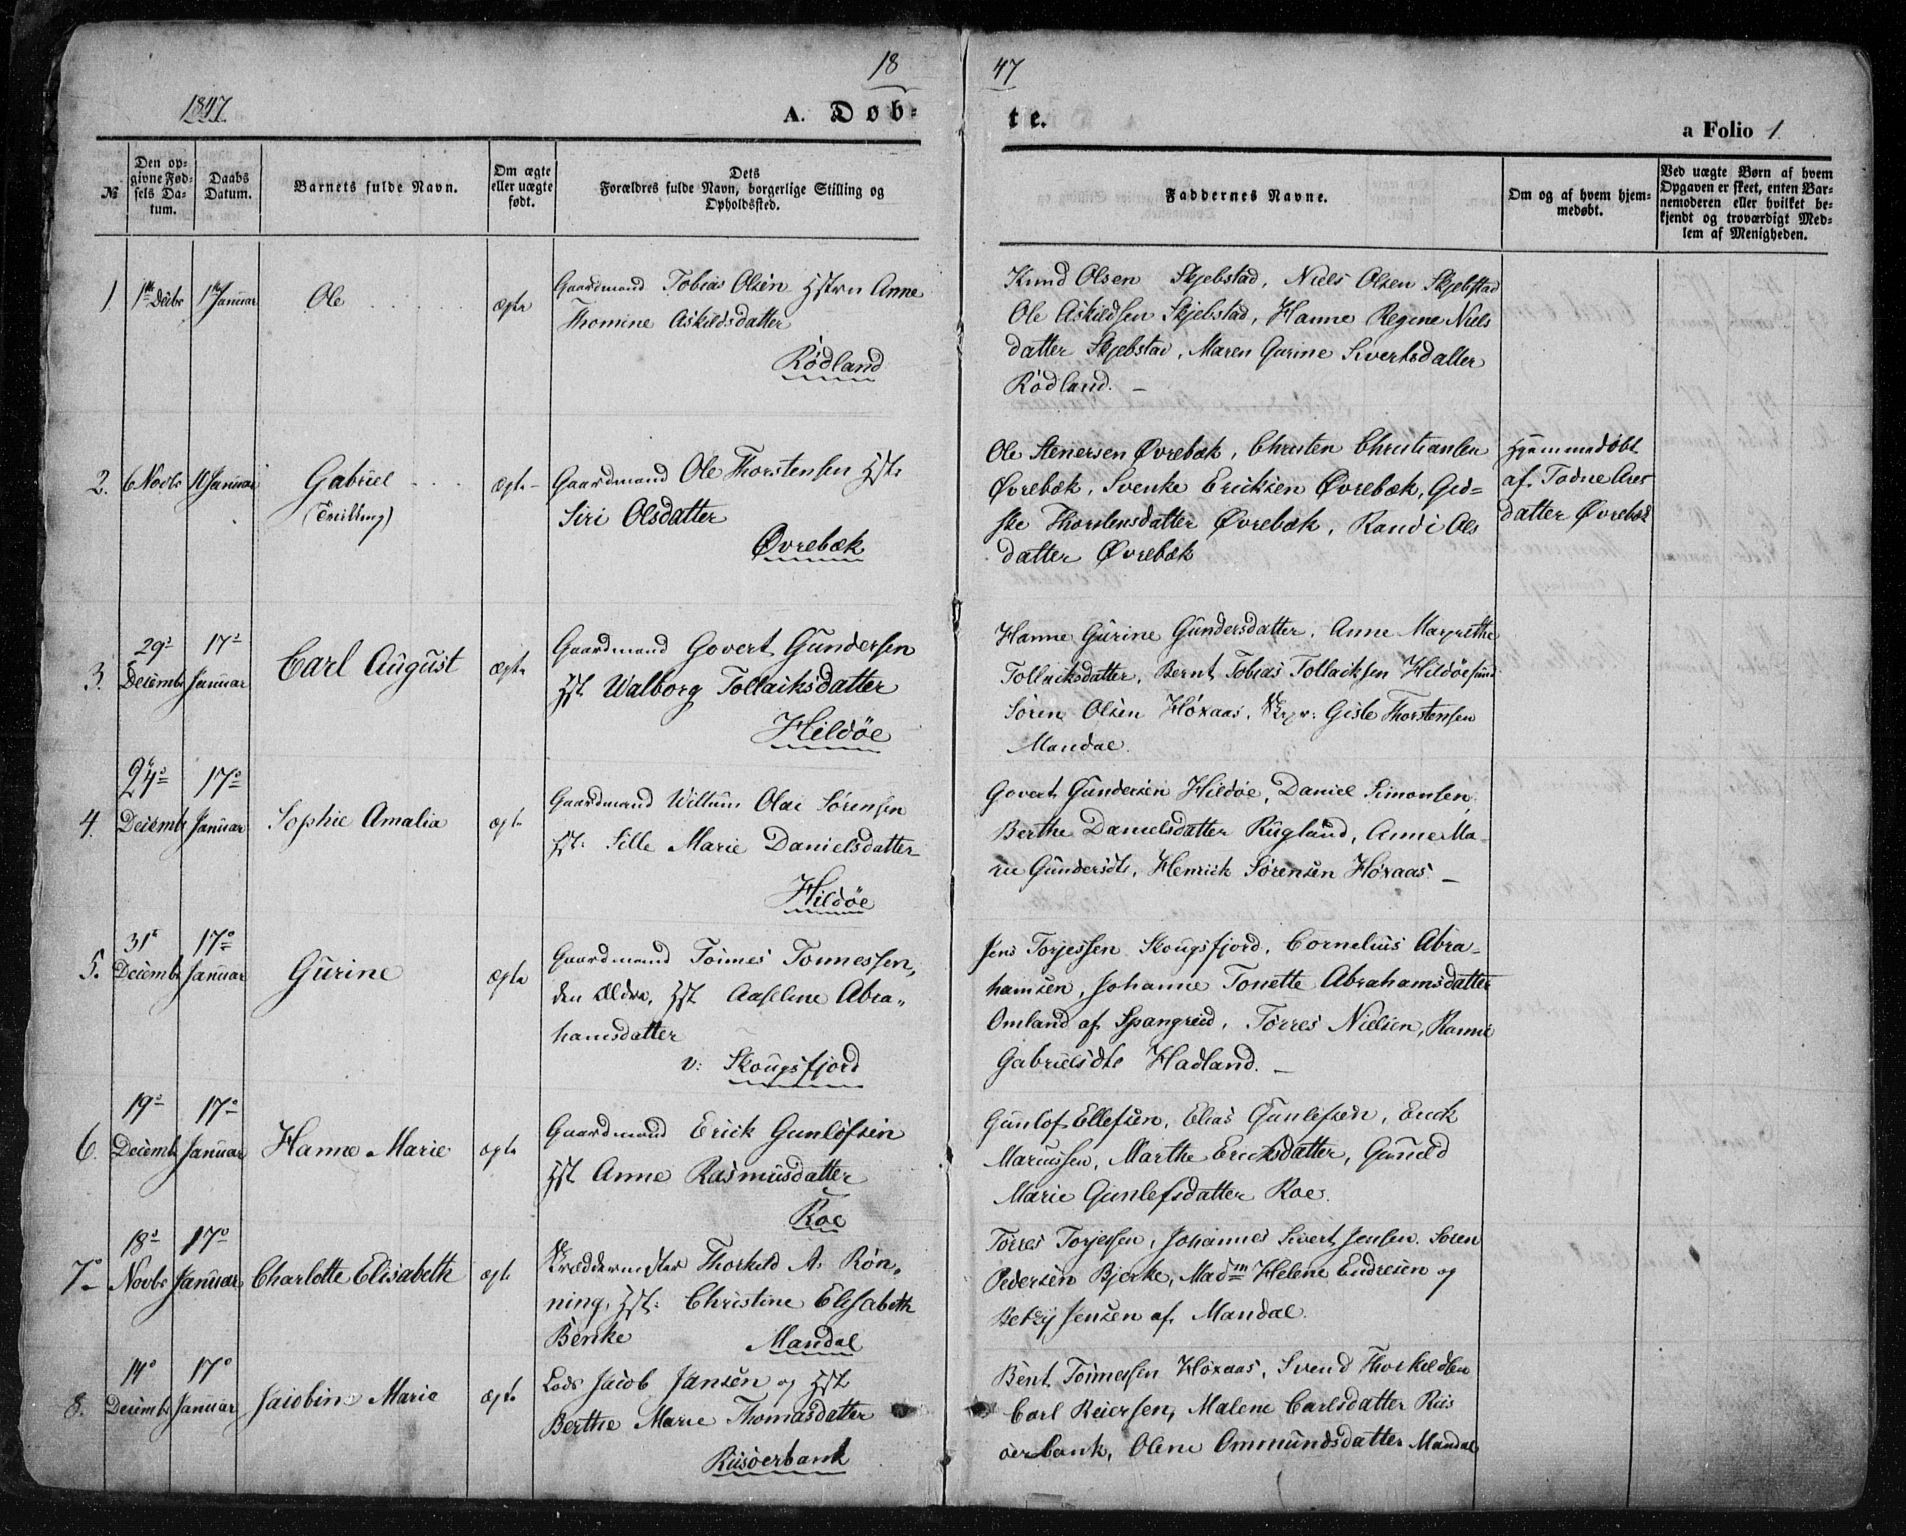 18 47
1847. A. Døb- te. a Folio 1.
№
Den op-
givne Fød-
sels Da-
tum.
Daabs
Datum.
Barnets fulde Navn.
Om ægte
eller uægte
født.
Dets
Forældres fulde Navn, borgerlige Stilling og
Opholdssted.
Faddernes Navne.
Om og af hvem hjem-
medøbt.
Ved uægte Børn af hvem
Opgaven er skeet, enten Bar-
nemoderen eller hvilket be-
kjendt og troværdigt Med-
lem af Menigheden.
1. 1ste Decbr 1ste Januar Ole ægte
Gaardmand Tobias Olsen Hstru Anne
Thomine Askildsdatter
Rødland
Knud Olsen Skjebstad, Niels Olsen Skjebstad
Ole Askildsen Skjebstad, Hanne Regine Niels
datter Skjebstad, Maren Gurine Sivertsdatter
Rødland. —
2. 6 Novbr 10 Januar Gabriel
(Tvilling)
ægte
Gaardmand Ole Thorstensen Hst:
Siri Olsdatter
Øvrebæk
Ole Stenersen Øvrebæk, Christen Christiansen
Øvrebæk, Svenke Ericksen Øvrebæk, Ged=
ske Thorstensdatter Øvrebæk, Randi Ols
datter Øvrebæk
Hjemmedøbt
af Todne Ares
datter Øvrebæk
3. 29de Decembr 17de Januar Carl August ægte
Gaardmand Govert Gundersen
Hst Walborg Tollaksdatter
Hildøe
Hanne Gurine Gundersdatter, Anne Margrethe
Tollaksdatter, Bernt Tobias Tollacksen Hildøesund
Søren Olsen Høxaas, Gisle Thorstensen
Mandal.
4. 24de Decembr 17de Januar Sophie Amalia ægte
Gaardmand Willum Olai Sørensen
Hst: Sille Marie Danielsdatter
Hildøe
Govert Gundersen Hildøe, Daniel Simonsen,
Berthe Danielsdatter Rugland, Anne Ma-
rie Gundersdtr, Henrick Sørensen Høxaas. —
5. 31te Decembr 17de Januar Gurine ægte
Gaardmand Tønnes Tønnessen,
den Ældre, Hst Aaseline Abra-
hamsdatter
v: Skougsfjord
Jens Torjessen Skougsfjord, Cornelius Abra-
hamsen, Johanne Tonette Abrahamsdatter
Omland af Spangreid, Tørres Nielsen, Hanne
Gabrielsdtr Hadland. —
6. 19de Decembr 17de Januar Hanne Marie ægte
Gaardmand Erick Gunlofsen
Hst Anne Rasmusdatter
Roe
Gunlof Ellefsen, Elias Gunlefsen, Erick
Marcussen, Marthe Ericksdatter, Gunild
Marie Gunlefsdatter Roe.
7. 18de Novbr 17de Januar Charlotte Elisabeth ægte
Skræddermester Thorkild A. Røn-
ning, Hst: Christine Elisabeth
Benke Mandal
Tørres Torjessen, Johannes Sivert Jensen. Soren
Pedersen Bjerke, Madm Helene Endresen og
Betzy Jensen af Mandal.
8. 14de Decembr 17de Januar Jacobine Marie ægte
Lods Jacob Jansen og Hst
Berthe Marie Thomasdatter
Risøerbank
Bent Tønnessen Høxaas, Svend Thorkildsen
Carl Reiersen, Malene Carlsdatter Ris
øerbank, Olene Ommundsdatter Mandal